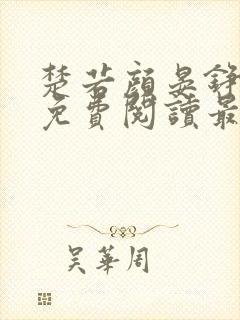 楚若顏晏錚
免費閱讀最
吴華周